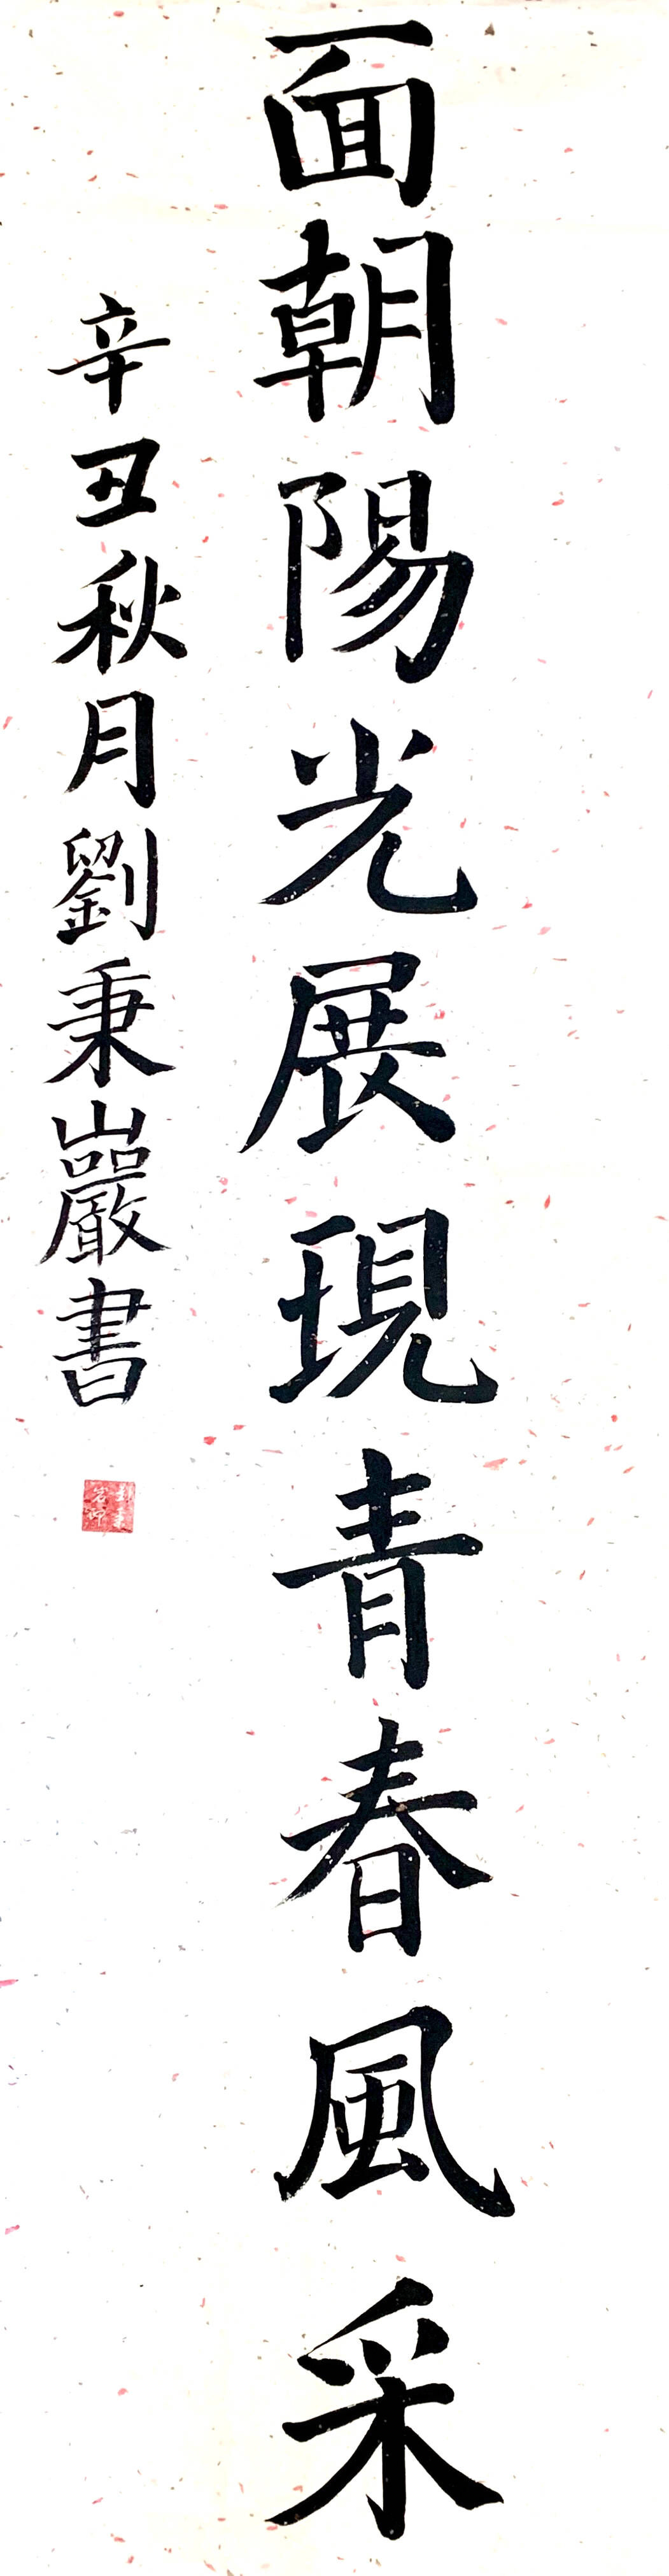 面朝陽光展現青春風采
辛丑秋月劉秉巖書